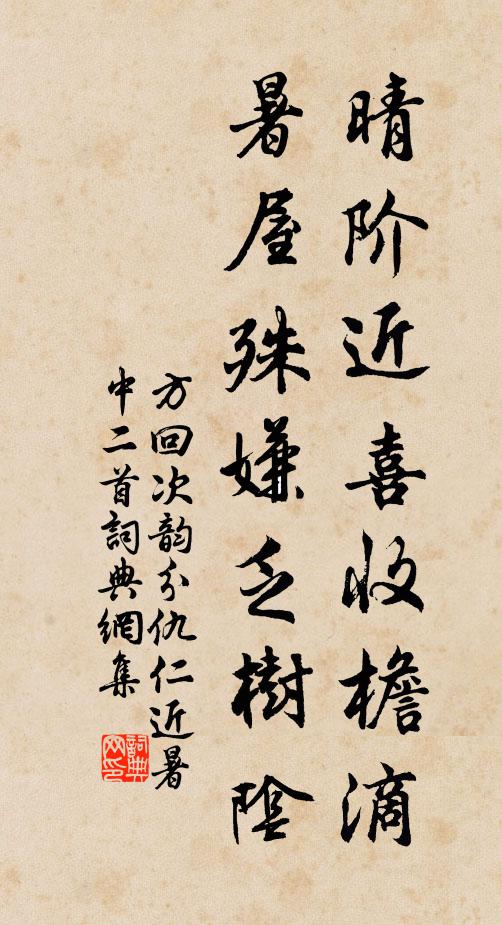 晴阶近喜收檐滴
暑屋殊嫌乏樹陰
方回次韵分仇仁近暑
中二首詞典網集
詞典
网印